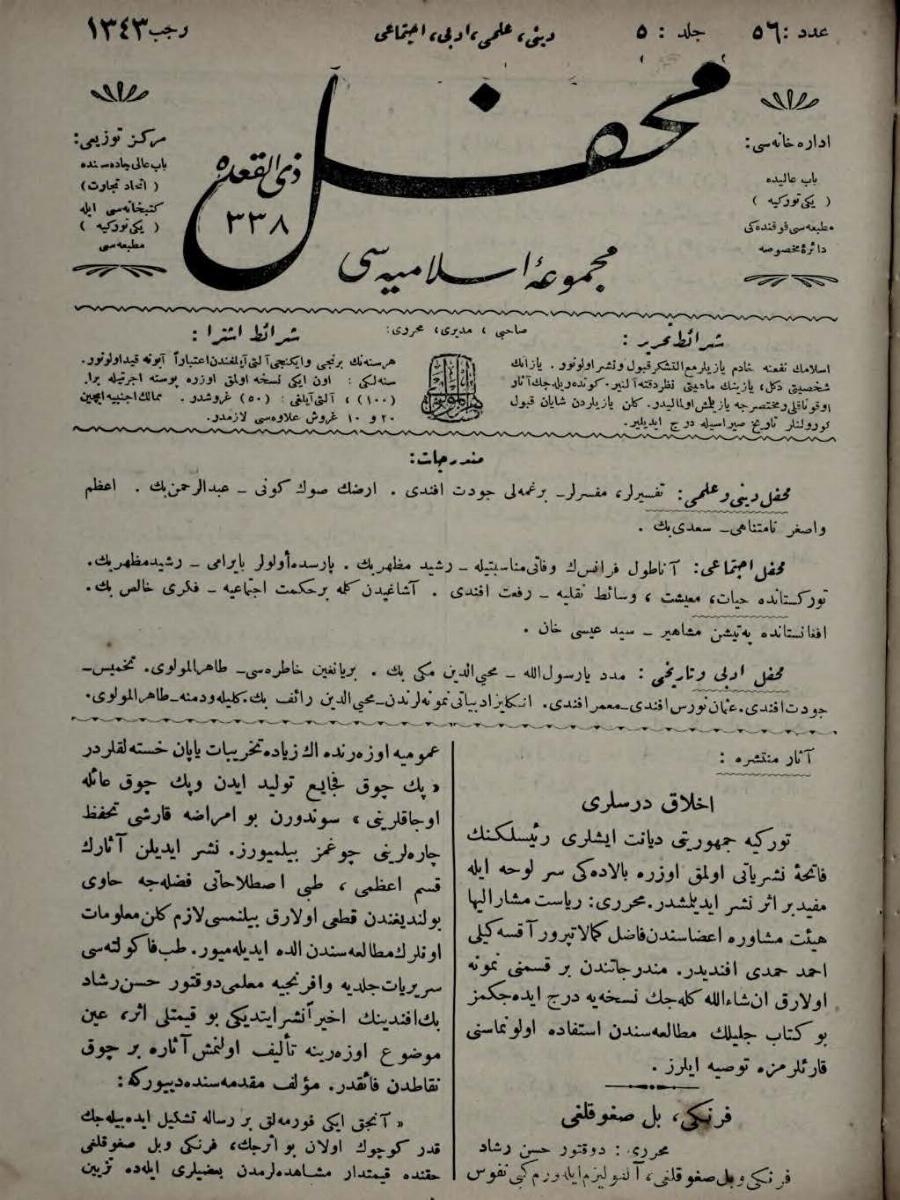 عدد : ٥٦ جلد : ٥ دينى ، علمى ، ادبى ، اجتماعى رجب ١٣٤٣
محفل
ذى القعده
٣٣٨
مجموعهٔ اسلاميه سى
اداره خانه سى :
باب عاليده
( يكى توركيه )
مطبعه سى فوقنده كى
دائرهٔ مخصوصه
مركز توزيعى :
باب عالى جاده سنده
( اتحاد تجارت )
كتبخانه سى ايله
( يكى توركيه )
مطبعه سى
صاحبى ، مديرى ، محررى :
شرائط تحرير :
اسلامك نفعنه خادم يازيلر مع التشكر قبول و نشر اولونور . يازانك
شخصيتى دكل ، يازينك ماديتى نظر دقته آلنير . كوندريله جك آثار
اوقوناقلى و مختصرجه يازيلمش اولماليدر . كلن يازيلردن شايان قبول
كورولنلر تاريخ صيراسيله درج ايديلير .
شرائط اشترا :
هر سنه نك برنجى وايكنجى آلتى آيلغندن اعتباراً آبونه قيد اولونور .
سنه لكى : اون ايكى نسخه اولمق اوزره پوسته اجرتيله برا.
(١٠٠) ، آلتى آيلغى : (٥٠) غروشدر . ممالك اجنبيه ايچين
٢٠ و ١٠ غروش علاوه سى لازمدر .
مندرجات :
محفل دينى و علمى : تفسيرلر ، مفسرلر ـ برغمه لى جودت افندى . ارضك صوك كونى ـ عبدالرحمن بك . اعظم
واصغر نامتناهى ـ سعدى بك .
محفل اجتماعى : آناطول فرانس ك وفاتى مناسبتيله ـ رشيد مظهر بك . پارسده أولولر بايرامى ـ رشيد مظهر بك .
توركستانده حيات ، معيشت ، وسائط نقليه ـ رفعت افندى . آشاغيدن كله بر حكمت اجتماعيه ـ فكرى خالص بك .
افغانستانده يه تيشن مشاهير ـ سيد عيسى خان .
محفل ادبى و تاريخى : مدد يا رسول الله ـ محيى الدين مكى بك . بر يانغين خاطره سى ـ طاهر المولوى . تخميس ـ
جودت افندى . عثمان نورس افندى ـ معمر افندى . انكليز ادبياتى نمونه لرندن ـ محيى الدين رائف بك . كليله و دمنه ـ طاهر المولوى .
آثار منتشره :
اخلاق درسلرى
توركيه جمهوريتى ديانت ايشلرى رئيسلكنك
فاتحهٔ نشرياتى اولمق اوزره بالاده كى سر لوحه ايله
مفيد بر اثر نشر ايديلمشدر . محررى : رياست مشاراليها
هيئت مشاوره اعضاسندن فاضل كمالاتپرور آقسه كيلى
احمد حمدى افنديدر . مندرجاتندن بر قسمنى نمونه
اولارق ان شاءالله كله جك نسخه يه درج ايده جكمز
بو كتاب جليلك مطالعه سندن استفاده اولونماسنى
قارئلرمزه توصيه ايلرز .
فرنكى ، بل صغوقلغى
محررى : دوقتور حسن رشاد
فرنكى و بل صغوقلغى ، آلقوليزم ايله ورم كبى نفوس
عموميه اوزه رنده اك زياده تخريبات ياپان خسته لقلردر
« پك چوق فجايع توليد ايدن وپك چوق عائله
اوجاقلرينى ، سوندورن بو امراضه قارشى تحفظ
چاره لرينى چوغمز بيلميورز . نشر ايديلن آثارك
قسم اعظمى ، طبى اصطلاحاتى فضله جه حاوى
بولنديغندن قطعى اولارق بيلنمسى لازم كلن معلومات
اونلرك مطالعه سندن الده ايديله ميور . طب فاكولته سى
سريريات جلديه وافرنجيه معلمى دوقتور حسن رشاد
بك افندينك اخيراً نشر ايتديكى بو قيمتلى اثر ، عين
موضوع اوزه رينه تأليف اولنمش آثاره بر چوق
نقاطدن فائقدر . مؤلف مقدمه سنده ديوركه :
« آنجق ايكى فورمه لق بر رساله تشكيل ايده بيله جك
قدر كوچوك اولان بو اثرجك ، فرنكى وبل صغوقلغى
حقنده قيمتدار مشاهده لرمدن بعضيلرى ايله ده تزيين